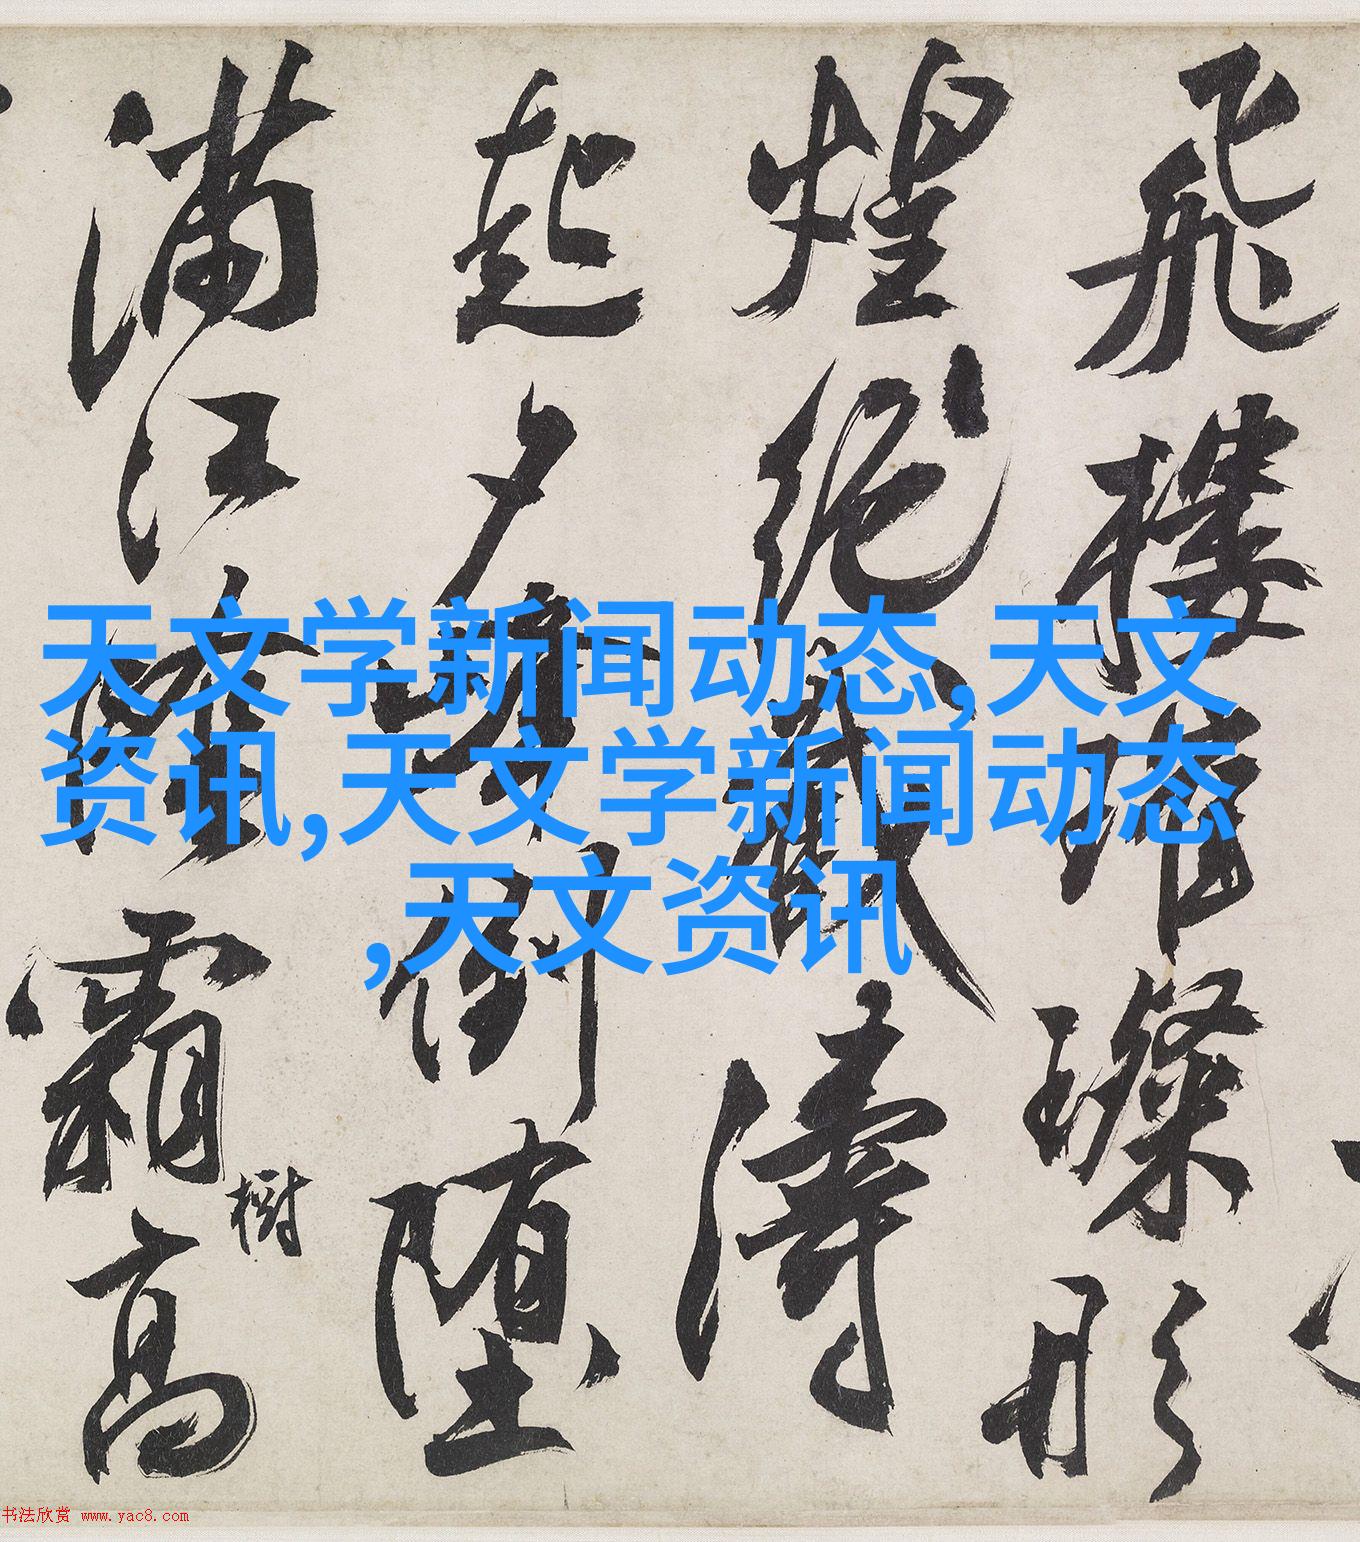 天文学新闻动态,天文
资讯,天文学新闻动态
,天文资讯
飛樓璀璨形
煌 濤
起夕 倒墮
滿江 霜高
樹
书法欣赏 www.yac8.com